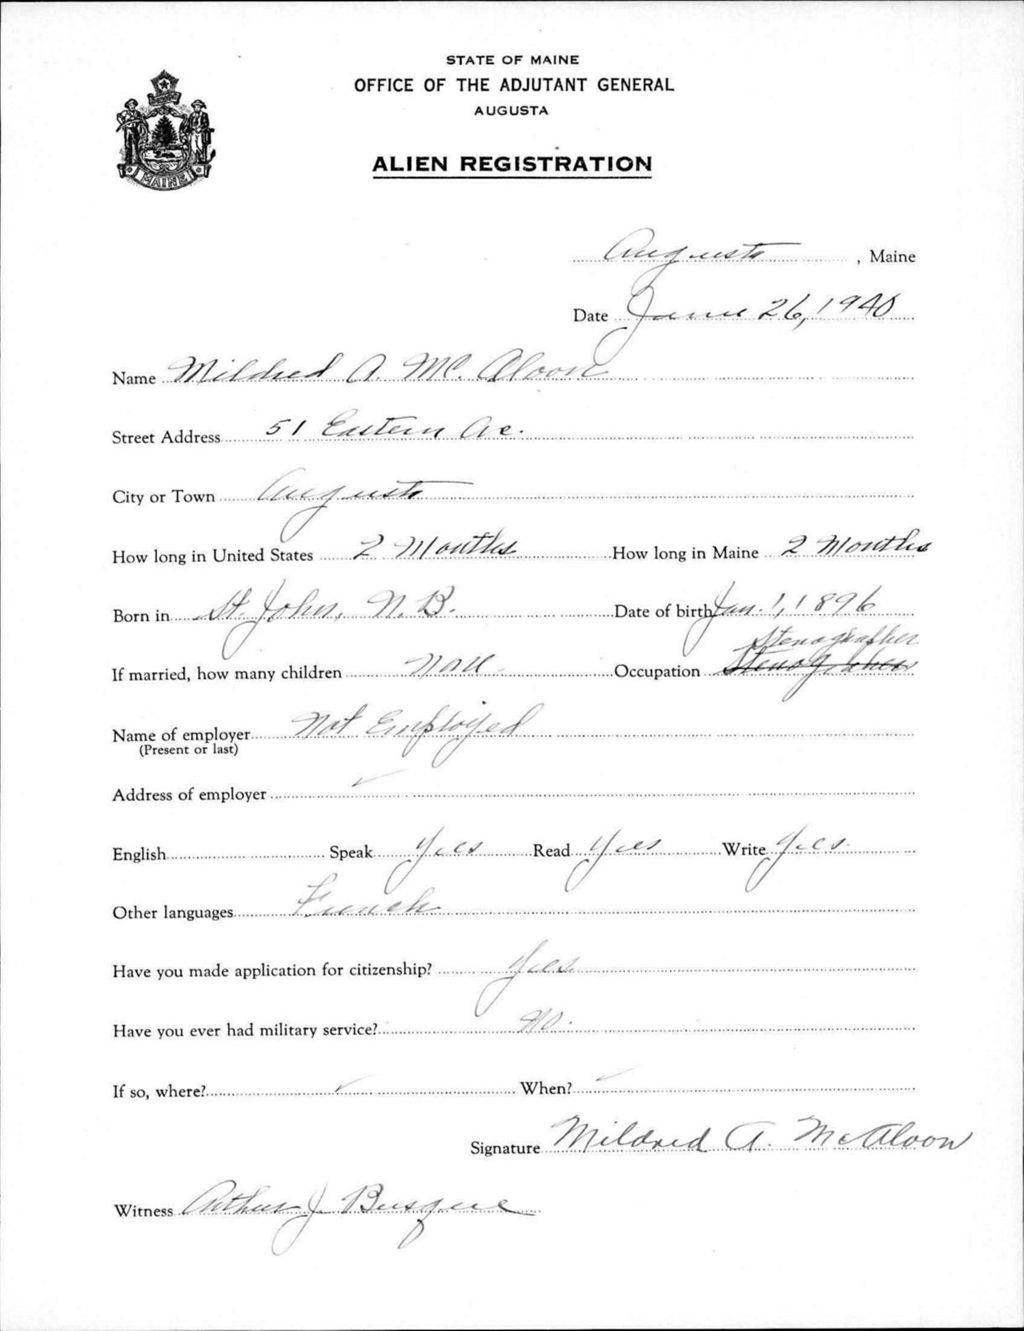 STATE OF MAINE
OFFICE OF THE ADJUTANT GENERAL
AUGUSTA
ALIEN REGISTRATION
MAINE
Augusta, Maine
Date June 26, 1940
Name Mildred A. Mc. Aloon
Street Address 51 Eastern Ave.
City or Town Augusta
How long in United States 2 Months How long in Maine 2 Months
Born in St. John, N.B. Date of birth Jan. 1, 1896
Stenographer
If married, how many children None Occupation Stenographer
Name of employer Not Employed
(Present or last)
Address of employer ✓
English Speak Yes Read Yes Write Yes.
Other languages French
Have you made application for citizenship? Yes.
Have you ever had military service? No.
If so, where? ✓ When? ✓
Signature Mildred A. McAloon
Witness Arthur J. Busque